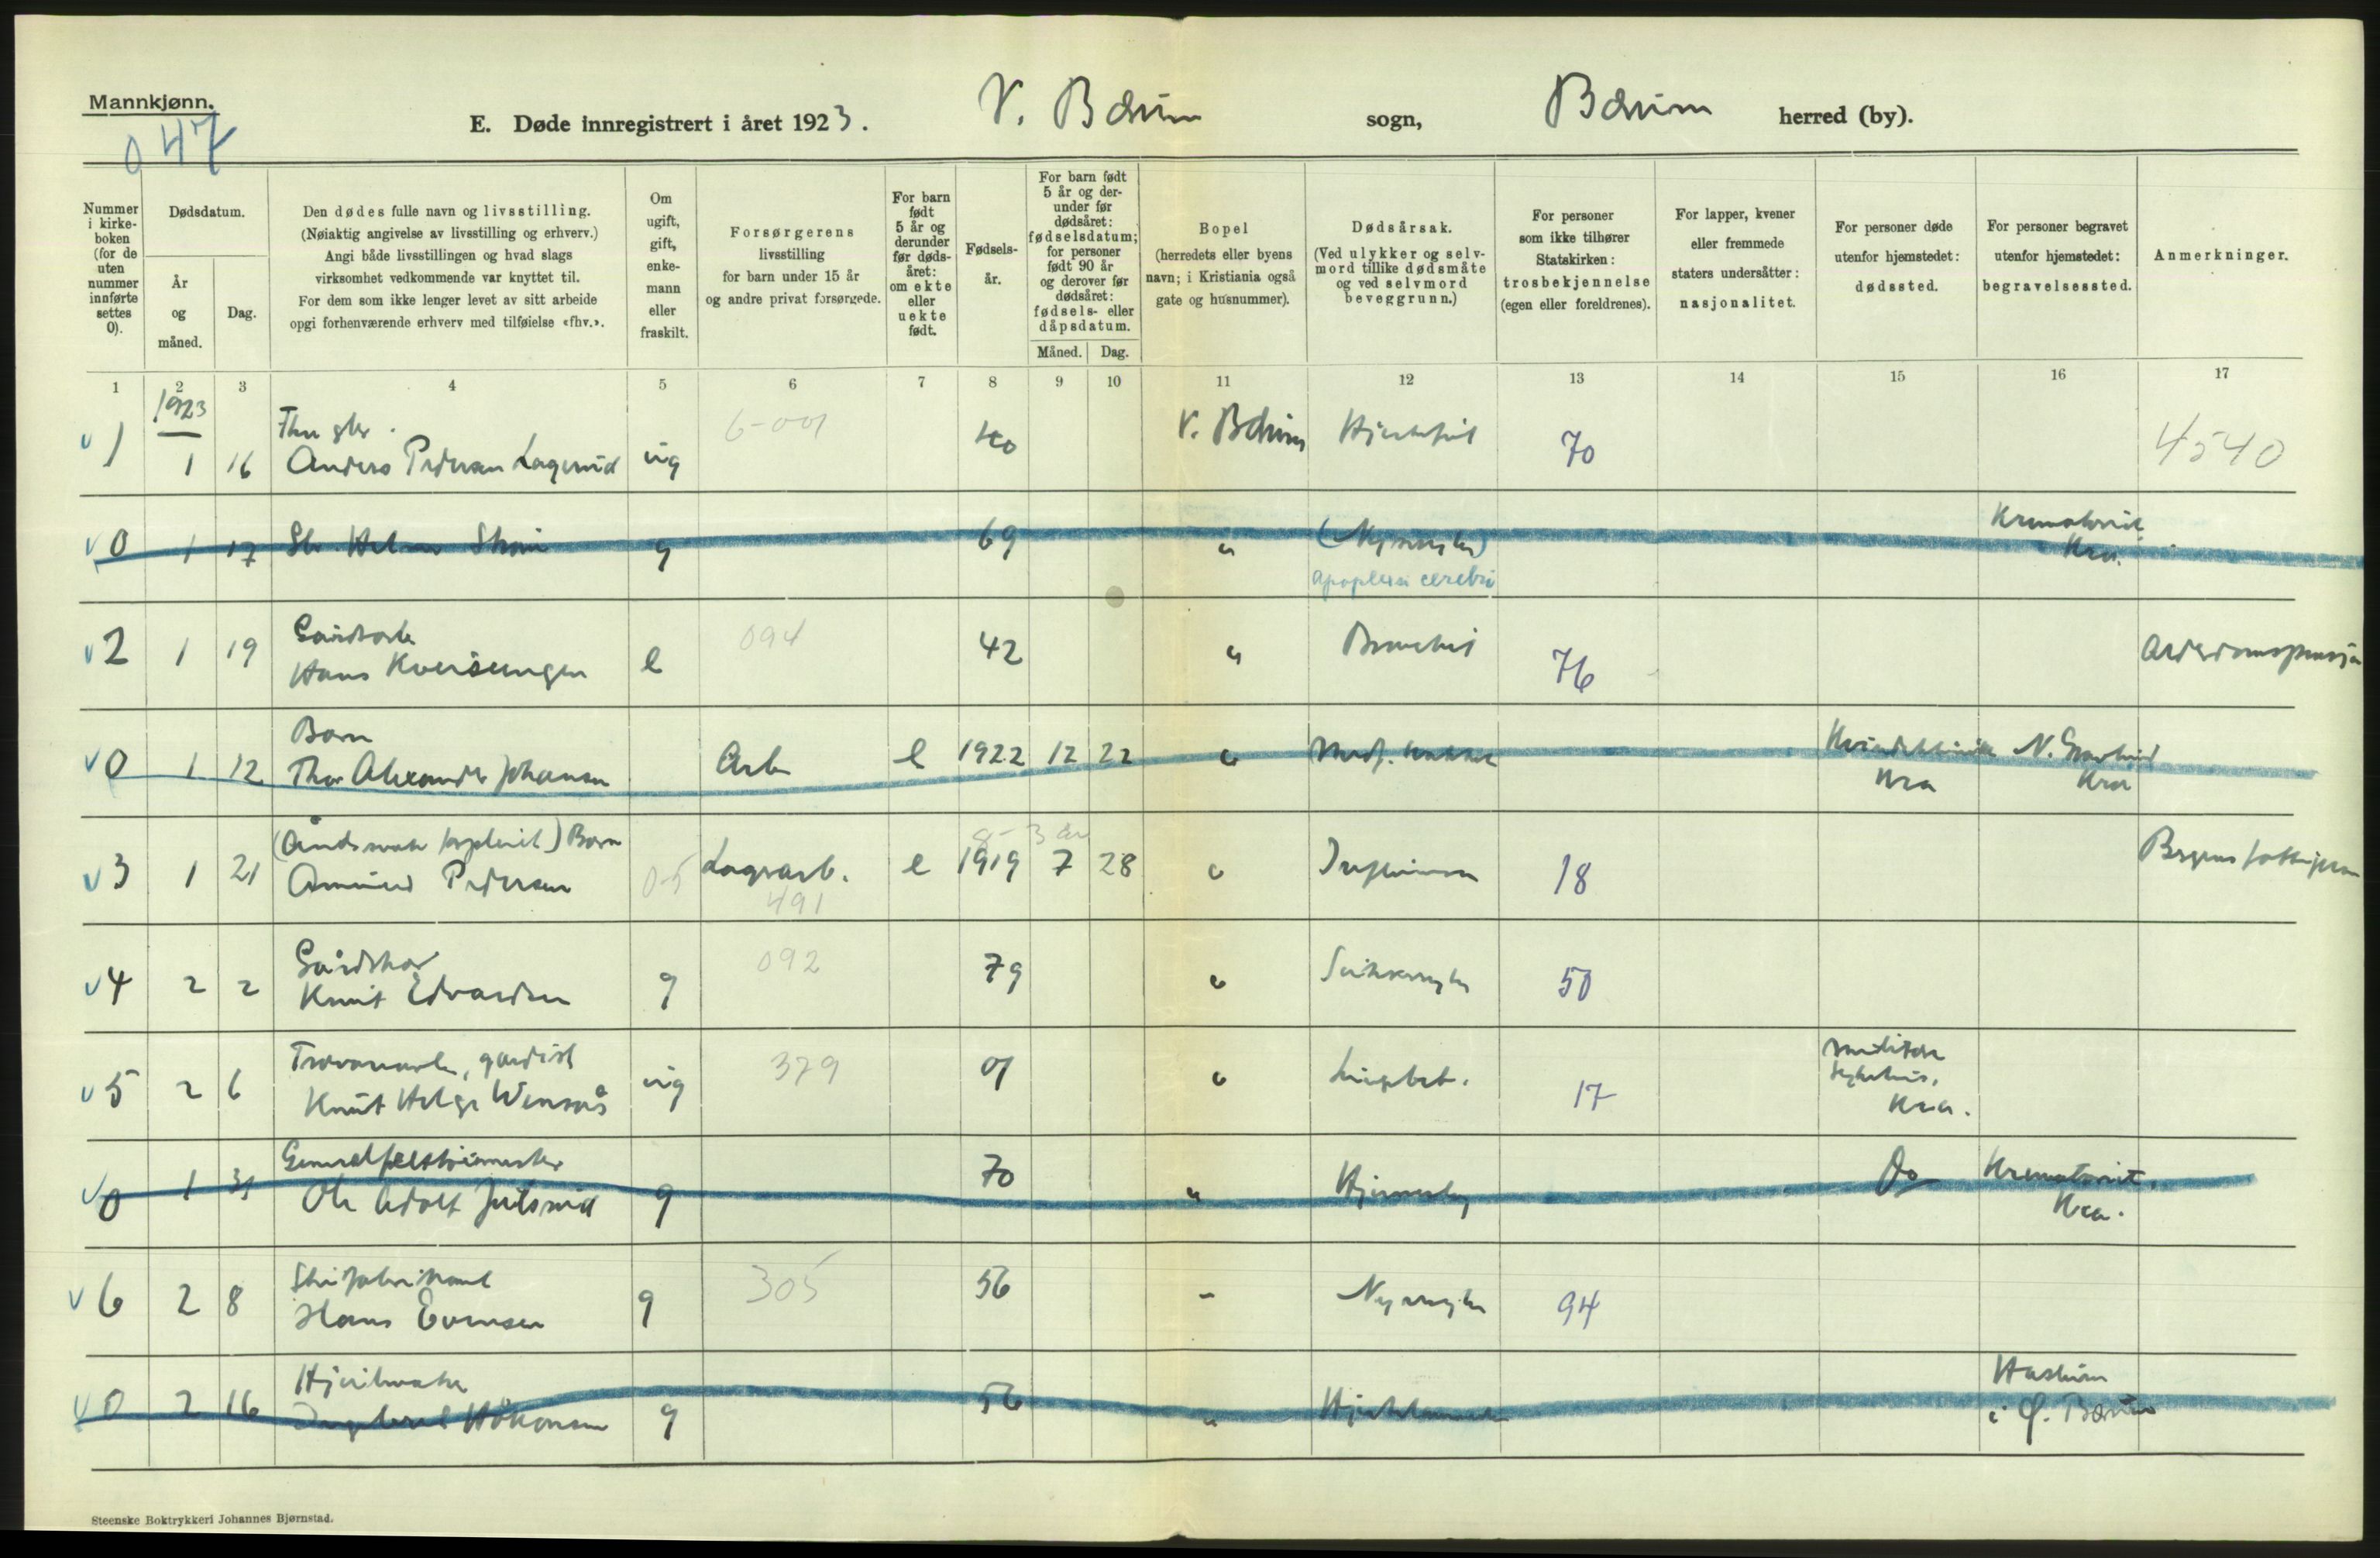 Mannkjønn.
047
E. Døde innregistrert i året 1923.
V. Bærum sogn, Bærum herred (by).
Nummer i kirke-boken (for de uten nummer innførte settes 0).
Dødsdatum.
År og måned.
Dag.
Den dødes fulle navn og livsstilling.
(Nøiaktig angivelse av livsstilling og erhverv.)
Angi både livsstillingen og hvad slags
virksomhet vedkommende var knyttet til.
For dem som ikke lenger levet av sitt arbeide
opgi forhenværende erhverv med tilføielse «fhv.».
Om ugift, gift, enke-mann eller fraskilt.
Forsørgerens
livsstilling
for barn under 15 år
og andre privat forsørgede.
For barn født 5 år og derunder før døds-året: om ekte eller uekte født.
Fødsels-år.
For barn født 5 år og der-under før dødsåret: fødselsdatum; for personer født 90 år og derover før dødsåret: fødsels- eller dåpsdatum.
Måned.
Dag.
Bopel
(herredets eller byens
navn; i Kristiania også
gate og husnummer).
Dødsårsak.
(Ved ulykker og selv-
mord tillike dødsmåte
og ved selvmord
beveggrunn.)
For personer
som ikke tilhører
Statskirken:
trosbekjennelse
(egen eller foreldrenes).
For lapper, kvener
eller fremmede
staters undersåtter:
nasjonalitet.
For personer døde
utenfor hjemstedet:
dødssted.
For personer begravet
utenfor hjemstedet:
begravelsessted.
Anmerkninger.
1 2 3 4 5 6 7 8 9 10 11 12 13 14 15 16 17
1923
6-001
1 1 16 Anders Pedersen Lagerud ug 40 V. Bærum 70 4540
0 1 17 g 69 " Krematoriet
Kra.
apoplexia cerebri
Gårdsarb
094
2 1 19 Hans e 42 " Bronchit 76 Alderdomspensjon
Barn
0 1 12 Thor Alexander Johansen Arb e 1922 12 22 " Medf. Kvindeklinikk N. Gravlund
Kra Kra
Barn
8- 3 år
3 1 21 Amund Pedersen 0-5 Lagerarb. e 1919 7 28 " 18
491
Gårdskar
092
4 2 2 Knut Edvardsen g 79 " 50
gardist
379
5 2 6 Knut Helge ug 01 " Lungebet. 17 Militær
sykehus,
Kra.
0 1 31 Ole Adolf g 70 " Do Krematoriet,
Kra.
Skifabrikant
305
6 2 8 Hans Evensen g 56 - 94
Hjulmaker
0 2 16 Ingebret Håkonsen g 56 " Haslum
i Ø. Bærum
Steenske Boktrykkeri Johannes Bjørnstad.